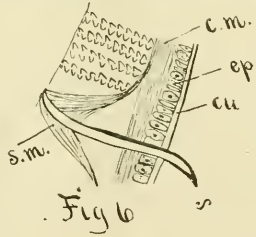 c.m.
ep
cu
s.m.
s
Fig 6